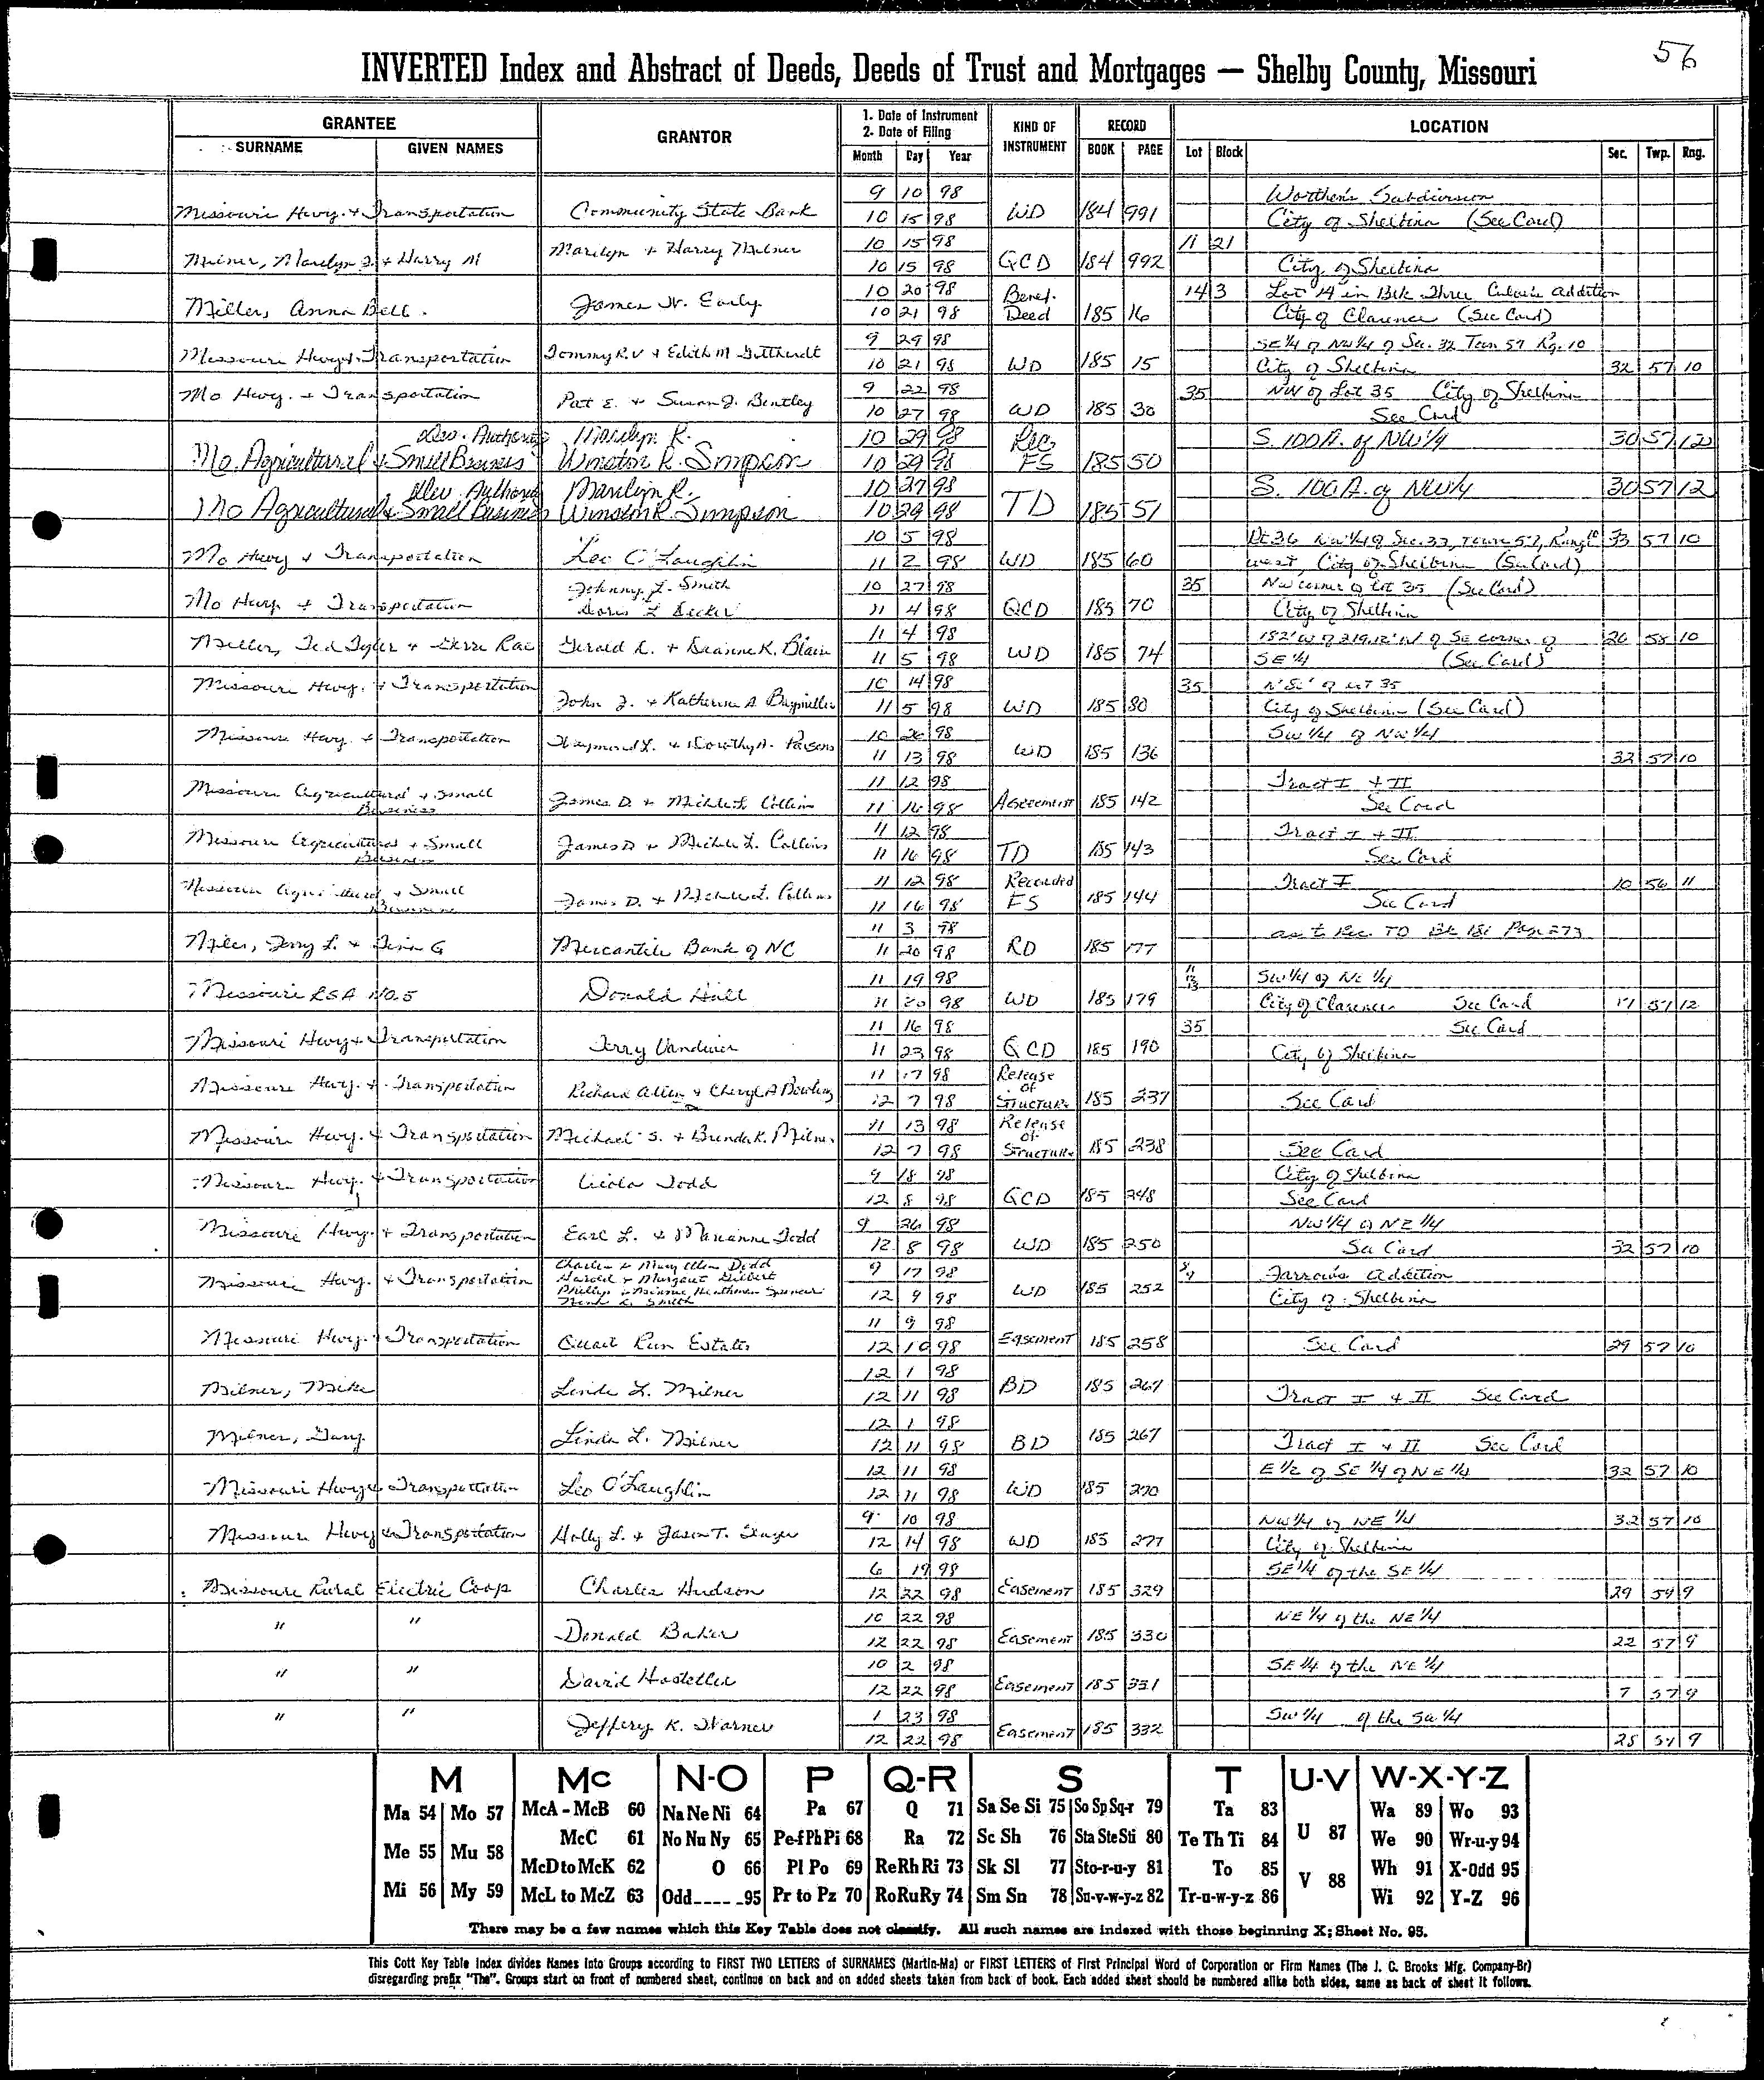 56
INVERTED Index and Abstract of Deeds, Deeds of Trust and Mortgages — Shelby County, Missouri
GRANTEE GRANTOR 1. Date of Instrument 2. Date of Filing KIND OF INSTRUMENT RECORD LOCATION
SURNAME GIVEN NAMES Month Day Year BOOK PAGE Lot Block Sec. Twp. Rng.
9 10 98 Worthen's Subdivision
Missouri Hwy. + Transportation Community State Bank 10 15 98 WD 184 991 City of Shelbina (See Card)
Marilyn + Harry Milner 10 15 98 11 21
Milner, Marilyn J. + Harry M 10 15 98 QCD 184 992 City of Shelbina
10 20 98 Benef. 14 3 Lot 14 in Blk Three Addition
Miller, Anna Bell. James W. Early 10 21 98 Deed 185 16 City of Clarence (See Card)
9 29 98 SE 1/4 of NW 1/4 of Sec. 32 Twn 57 Rg. 10
Missouri Hwy + Transportation Tommy R.V + Edith M 10 21 98 WD 185 15 City of Shelbina 32 57 10
Mo Hwy. + Transportation 9 22 98 35 NW of Lot 35 City of Shelbina
Pat E. + Susan J. Bentley 10 27 98 WD 185 30 See Card
Dev. Authority Marilyn R. 10 29 98 Rec S. 100 A. of NW 1/4 30 57 12
Mo. Agricultural + Small Business Winston R. Simpson 10 29 98 FS 185 50
Dev. Authority Marilyn R. 10 27 98 S. 100 A. of NW 1/4 30 57 12
Mo Agricultural + Small Business Winston R. Simpson 10 29 98 TD 185 51
10 5 98 NW 1/4 of Sec. 33, Town 57, Range 10 33 57 10
Mo Hwy + Transportation Leo O'Laughlin 11 2 98 WD 185 60 west, City of Shelbina (See Card)
Johnny L. Smith 10 27 98 35 NW corner of Lot 35 (See Card)
Mo Hwy + Transportation Doris L Decker 11 4 98 QCD 185 70 City of Shelbina
11 4 98 182' W of 219.12' N of SE corner of 26 58 10
Miller, Ted Tyler + Gerald R. + Deanne K. Blair 11 5 98 WD 185 74 SE 1/4 (See Card)
Missouri Hwy. + Transportation 10 14 98 35 Lot 35
John J. + Katherine A 11 5 98 WD 185 80 City of Shelbina (See Card)
Missouri Hwy. + Transportation Raymond L. + Dorothy A. Parsons 10 26 98 SW 1/4 of NW 1/4
11 13 98 WD 185 136 32 57 10
Missouri Agricultural + Small 11 12 98 Tract I + II
Business James D. + Michele L Collins 11 16 98 Agreement 185 142 See Card
Missouri Agricultural + Small 11 12 98 Tract I + II
Business James D + Michele L. Collins 11 16 98 TD 185 143 See Card
Missouri Agricultural + Small 11 12 98 Recorded Tract I 10 56 11
Business James D. + Michele L. Collins 11 16 98 FS 185 144 See Card
11 3 98 as to Rec. TD Bk 181 Page 273
Miles, Terry L. + Tina G Mercantile Bank of NC 11 20 98 RD 185 177
11 19 98 11 12 13 SW 1/4 of NE 1/4
Missouri RSA No. 5 Donald Hall 11 20 98 WD 185 179 City of Clarence See Card 17 57 12
11 16 98 35 See Card
Missouri Hwy + Transportation Terry Vanduser 11 23 98 QCD 185 190 City of Shelbina
11 17 98 Release of
Missouri Hwy. + Transportation Richard Allen + Cheryl A Bowling 12 7 98 Structure 185 237 See Card
11 13 98 Release of
Missouri Hwy. + Transportation Michael S. + Brenda K. Milner 12 7 98 Structure 185 238 See Card
9 18 98 City of Shelbina
Missouri Hwy. + Transportation Todd 12 8 98 QCD 185 248 See Card
9 26 98 NW 1/4 of NE 1/4
Missouri Hwy. + Transportation Earl L. + Marianne Todd 12 8 98 WD 185 250 See Card 32 57 10
Charles + Mary Ellen Dodd
Harold + Margaret Gilbert 9 17 98 Farrow's Addition
Missouri Hwy. + Transportation Phillip + Spencer 12 9 98 WD 185 252 City of Shelbina
Smith
11 9 98
Missouri Hwy. + Transportation Quail Run Estates 12 10 98 Easement 185 258 See Card 29 57 10
12 1 98
Milner, Mike Linda L. Milner 12 11 98 BD 185 267 Tract I + II See Card
12 1 98
Milner, Gary Linda L. Milner 12 11 98 BD 185 267 Tract I + II See Card
12 11 98 E 1/2 of SE 1/4 of NE 1/4 32 57 10
Missouri Hwy + Transportation Leo O'Laughlin 12 11 98 WD 185 270
9 10 98 NW 1/4 of NE 1/4 32 57 10
Missouri Hwy + Transportation Holly L. + Jason T. 12 14 98 WD 185 277 City of Shelbina
6 19 98 SE 1/4 of the SE 1/4
Missouri Rural Electric Coop Charles Hudson 12 22 98 Easement 185 329 29 59 9
" " 10 22 98 NE 1/4 of the NE 1/4
Donald Baker 12 22 98 Easement 185 330 22 57 9
" " 10 2 98 SE 1/4 of the NE 1/4
David Hostetler 12 22 98 Easement 185 331 7 57 9
" " 1 23 98 SW 1/4 of the SW 1/4
Jeffery K. Warner 12 22 98 Easement 185 332 25 59 9
M Mc N-O P Q-R S T U-V W-X-Y-Z
Ma 54 Mo 57 McA - McB 60 Na Ne Ni 64 Pa 67 Q 71 Sa Se Si 75 So Sp Sq-r 79 Ta 83 U 87 Wa 89 Wo 93
Me 55 Mu 58 McC 61 No Nu Ny 65 Pe-f Ph Pi 68 Ra 72 Sc Sh 76 Sta Ste Sti 80 Te Th Ti 84 We 90 Wr-u-y 94
McD to McK 62 O 66 Pl Po 69 Re Rh Ri 73 Sk Sl 77 Sto-r-u-y 81 To 85 V 88 Wh 91 X-Odd 95
Mi 56 My 59 McL to McZ 63 Odd____95 Pr to Pz 70 Ro Ru Ry 74 Sm Sn 78 Su-v-w-y-z 82 Tr-u-w-y-z 86 Wi 92 Y-Z 96
There may be a few names which this Key Table does not classify. All such names are indexed with those beginning X; Sheet No. 95.
This Cott Key Table Index divides Names Into Groups according to FIRST TWO LETTERS of SURNAMES (Martin-Ma) or FIRST LETTERS of First Principal Word of Corporation or Firm Names (The J. C. Brooks Mfg. Company-Br)
disregarding prefix "The". Groups start on front of numbered sheet, continue on back and on added sheets taken from back of book. Each added sheet should be numbered alike both sides, same as back of sheet it follows.